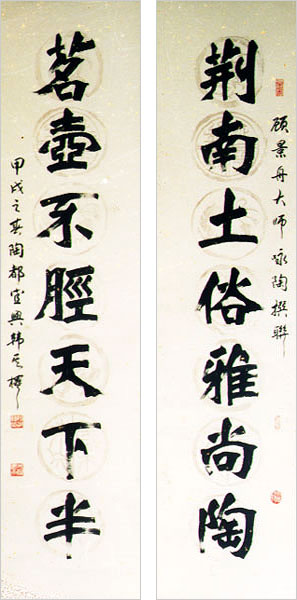 顾景舟大师 咏陶撰联
荆南土俗雅尚陶
茗壺不脛天下半
甲戌之春陶都宜興韩其楼